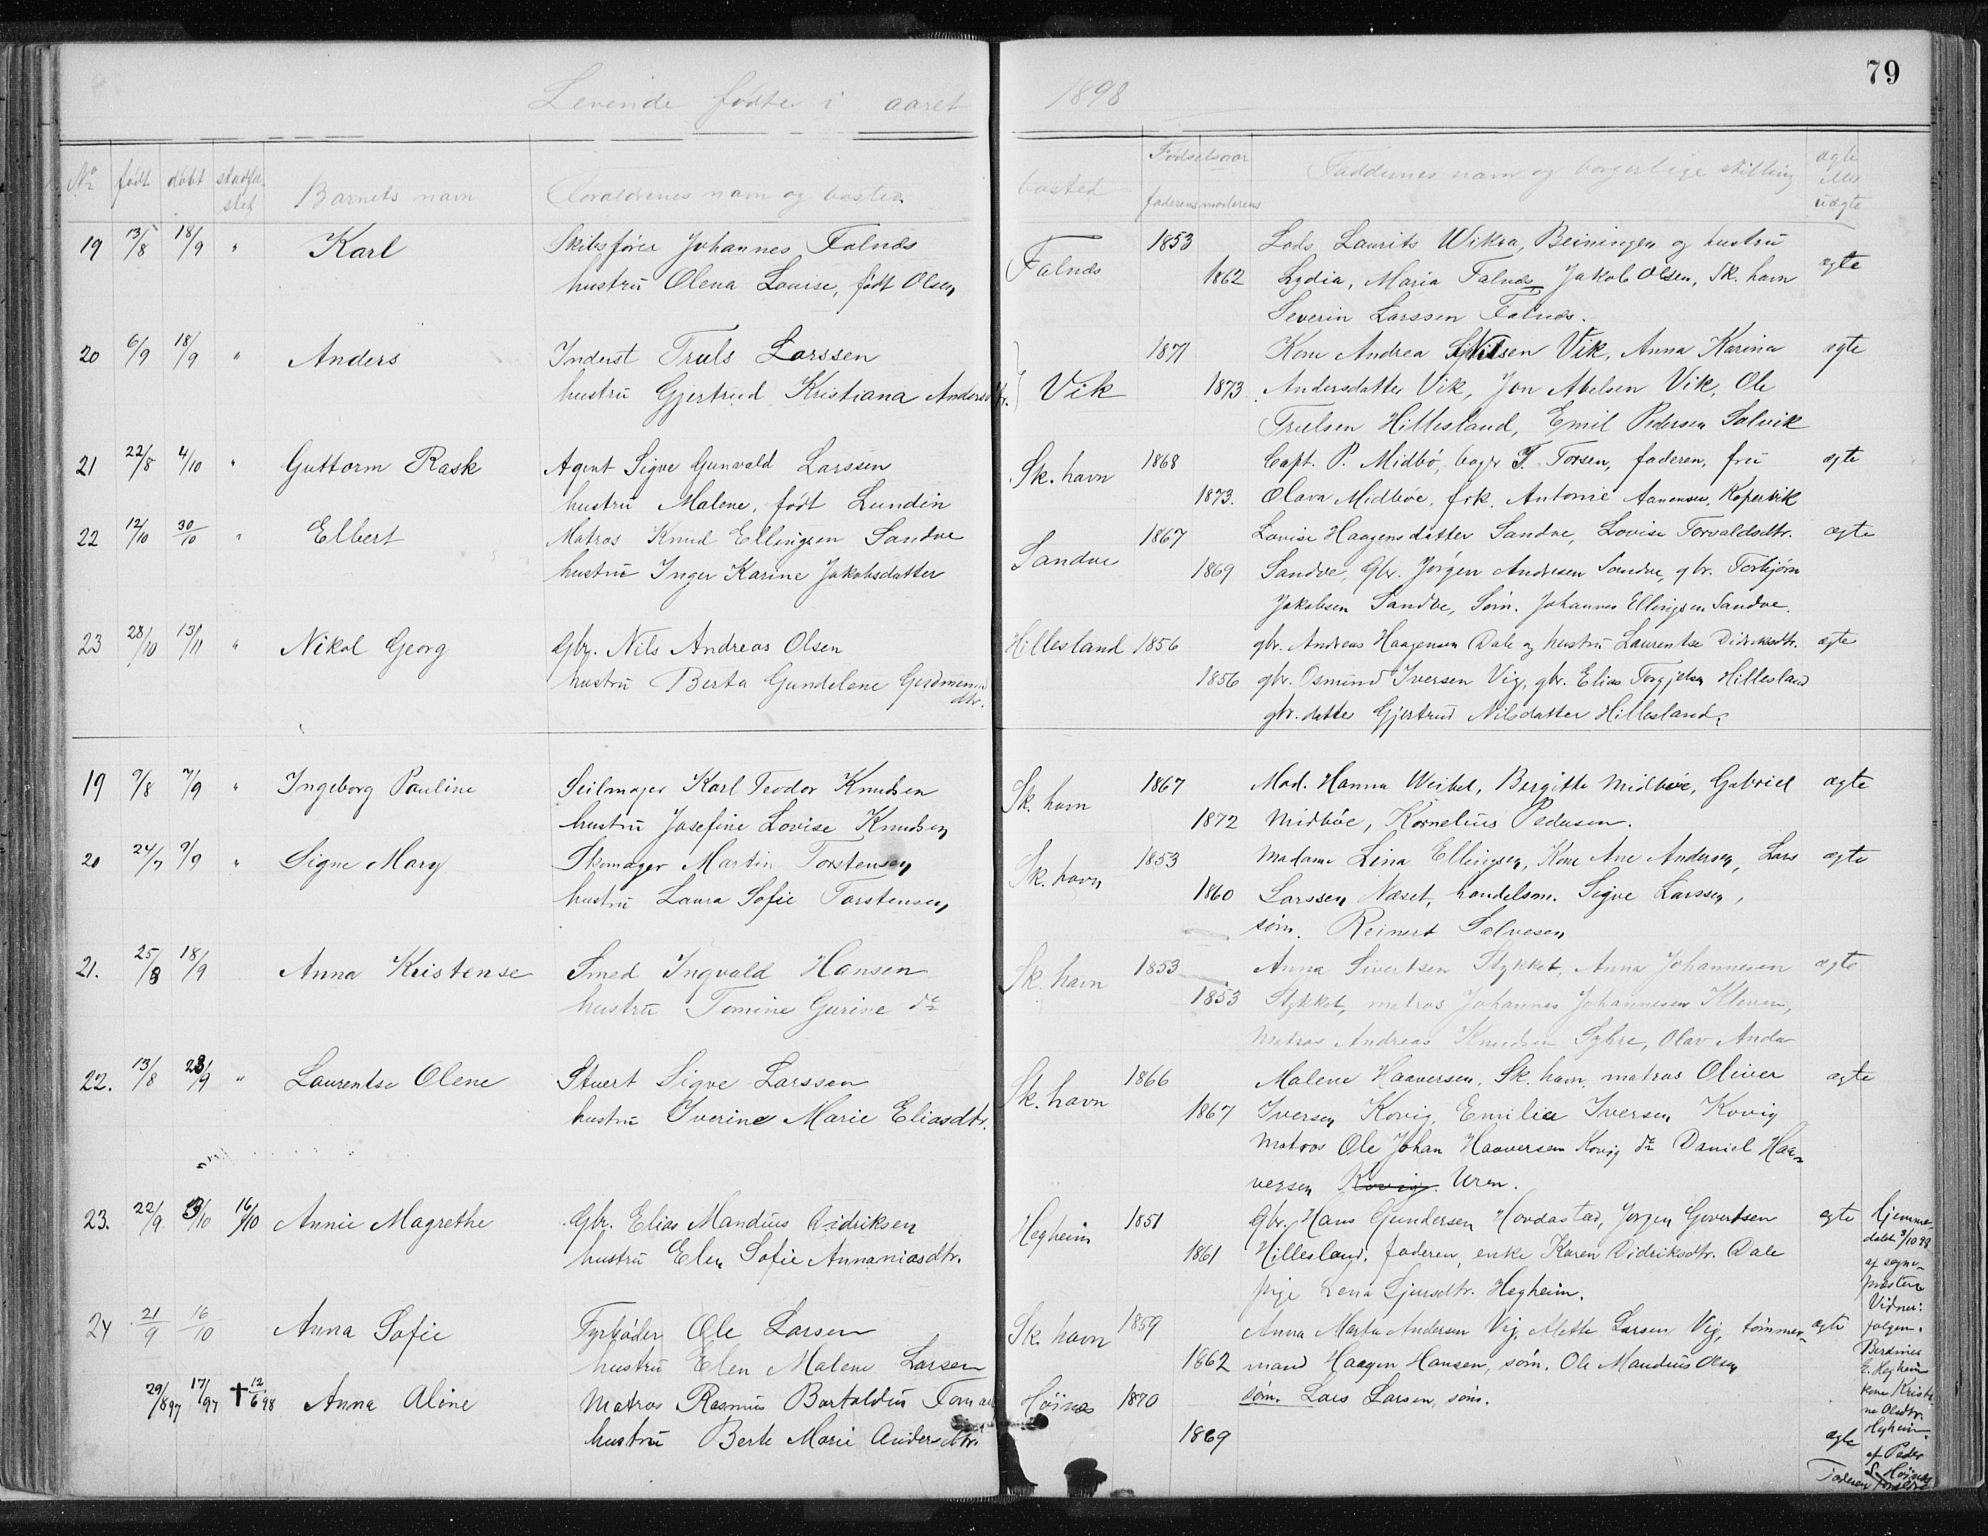 79
Levende fødte i aaret 1898
No født døbt stadfæ. sted Barnets navn Forældrenes navn og bosted bosted Fødselsaar faderens moderens Faddernes navn og borgerlige stilling ægte eller uægte
19 13/8 18/9 " Karl Skibsfører Johannes Falnes Falnes 1853 Lods Laurits Wikra, Beiningen og hustru
hustru Olena Louise, født Olsen 1862 Lydia, Maria Falnes, Jakob Olsen, Sk. havn ægte
Severin Larssen Falnes.
20 6/9 18/9 " Anders Inderst Truls Larssen Vik 1871 Kone Andrea Nilsen Vik, Anna Karina ægte
hustru Gjertrud Kristiana Andersdtr. 1873 Andersdatter Vik, Jon Abelsen Vik, Ole
Trulsen Hillesland, Emil Pedersen Solvik
21 22/8 4/10 " Guttorm Rask Agent Sigve Gunvald Larssen Sk. havn 1868 Capt. P. Midbø, bager T. Torsen, faderen, fru ægte
hustru Malene, født Lundin 1873. Olava Midbøe, frk. Antonie Aanensen, Kopervik
22 12/10 30/10 " Elbert Matros Knud Ellingsen Sandve Sandve 1867 Lovise Haagensdatter Sandve, Lovise Torvaldsdtr. ægte
hustru Inger Karine Jakobsdatter 1869 Sandve, Gbr. Jørgen Andresen Sandve, gbr. Torbjørn
Jakobsen Sandve, Søm. Johannes Ellingsen Sandve.
23 28/10 13/11 " Nikol Georg Gbr. Nils Andreas Olsen Hillesland 1856 gbr. Andreas Haagensen Dale og hustru Laurentse Didriksdtr. ægte
hustru Berta Gundelene Gudmunds dtr. 1856 gbr. Osmund Iversen Vig, gbr. Elias Torgjelsen Hillesland
gbr. datter Gjertrud Nilsdatter Hillesland.
19 9/8 4/9 " Ingeborg Pauline Seilmager Karl Teodor Knudsen Sk. havn 1867 Mad. Hanna Weibel, Bergitte Midbøe, Gabriel ægte
hustru Josefine Lovise Knudsen 1872 Midbøe, Kornelius Pedersen.
20 24/7 9/9 " Signe Mary Skomager Martin Torstensen Sk. havn 1853 Madame Lina Ellingsen, Kone Ane Andersen, Lars ægte
hustru Laura Sofie Torstensen 1860 Larssen Næset, handelsm. Sigve Larssen,
søm. Reinert Salvesen
21. 25/8 18/9 Anna Kristense Smed Ingvald Hansen Sk. havn 1853 Anna Sivertsen Stykket, Anna Johannesen ægte
hustru Tomine Gurine do 1853 Stykket, matros Johannes Johannesen Kleven,
Matros Andreas Knudsen Syre, Olav Anda
22. 13/8 /9 " Laurentse Olene Stuert Sigve Larssen Sk. havn 1866 Malene Haaversen, Sk. havn, matros Oliver ægte
hustru Iverine Marie Eliasdtr. 1867 Iversen Kovig, Emilie Iversen Kovig
Matros Ole Johan Haaversen Kovig do Daniel Haa-
versen Kovig. Uren.
23. 22/9 3/10 16/10 Annie Magrethe Gbr. Elias Mandius Didriksen Hegheim 1851 Gbr. Hans Gundersen Hovdastad, Jørgen Govertsen ægte
hustru Elen Sofie Annaniasdtr. 1861 Hillesland, faderen, enke Karen Didriksdtr. Dale
pige Lena Sjursdtr. Hegheim.
Hjemme-
døbt 3/10 98
af sogne-
præsten
Vidner:
24 21/9 16/10 Anna Sofie Fyrbøder Ole Larsen Sk. havn 1859 Anna Marta Andersen Vig, Mette Larsen Vig, tømmer- ægte
hustru Elen Malene Larsen 1862 mand Haagen Hansen, søm. Ole Mandius Olsen
29/8 97 17/1 97 † 12/6 98 Anna Aline Matros Rasmus Bertoldus Høinæs 1870 søm. Lars Larsen, søm.
hustru Berte Marie Andersdtr. 1869 ægte
E. Hegheim
kone Kristi-
ne Olsdtr.
Hegheim.
af Peder